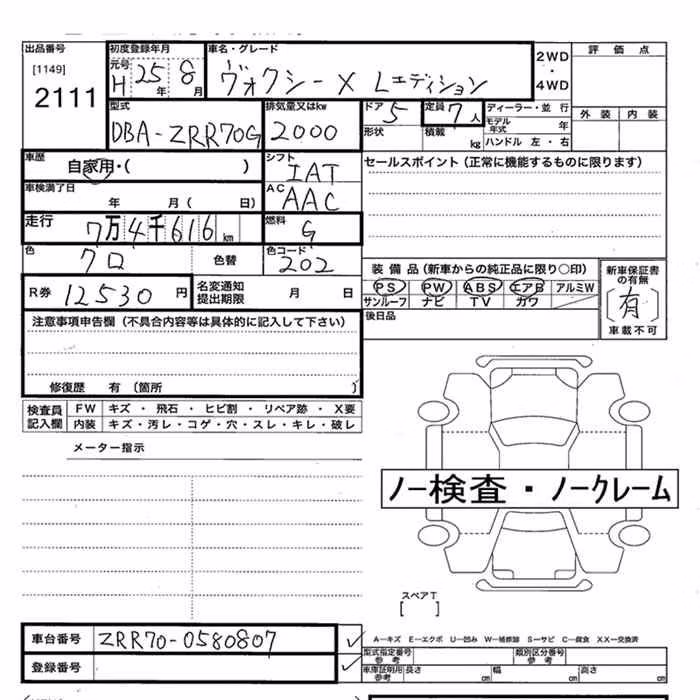 出品番号 初度登録年月 車名・グレード 2WD・4WD 評価点
[1149] 元号
2111 H 25年 8月 ヴォクシー X Lエディション
型式 排気量又はkw ドア 定員 ディーラー・並行 外装 内装
DBA-ZRR70G 2000 5 7人 モデル年式 年
形状 積載 kg ハンドル 左・右
車歴 自家用・( ) シフト IAT セールスポイント(正常に機能するものに限ります)
車検満了日 年 月( 日) AC AAC
走行 7万4千616km 燃料 G
色 クロ 色替 色コード 202
装備品(新車からの純正品に限り○印) 新車保証書の有無
PS PW ABS エアB アルミW
サンルーフ ナビ TV カワ
(有)
車載不可
後日品
R券 12530円 名変通知提出期限 月 日
注意事項申告欄(不具合内容等は具体的に記入して下さい)
修復歴 有 (箇所 )
検査員記入欄 FW キズ・飛石・ヒビ割・リペア跡・X要
内装 キズ・汚レ・コゲ・穴・スレ・キレ・破レ
メーター指示
ノー検査・ノークレーム
スペアT
[ ]
車台番号 ZRR70-0580807
登録番号
A—キズ E—エクボ U—凹み W—補修跡 S—サビ C—腐食 XX—交換済
型式指定番号 参考 類別区分番号 参考
車庫証明用 参考 長さ cm 幅 cm 高さ cm